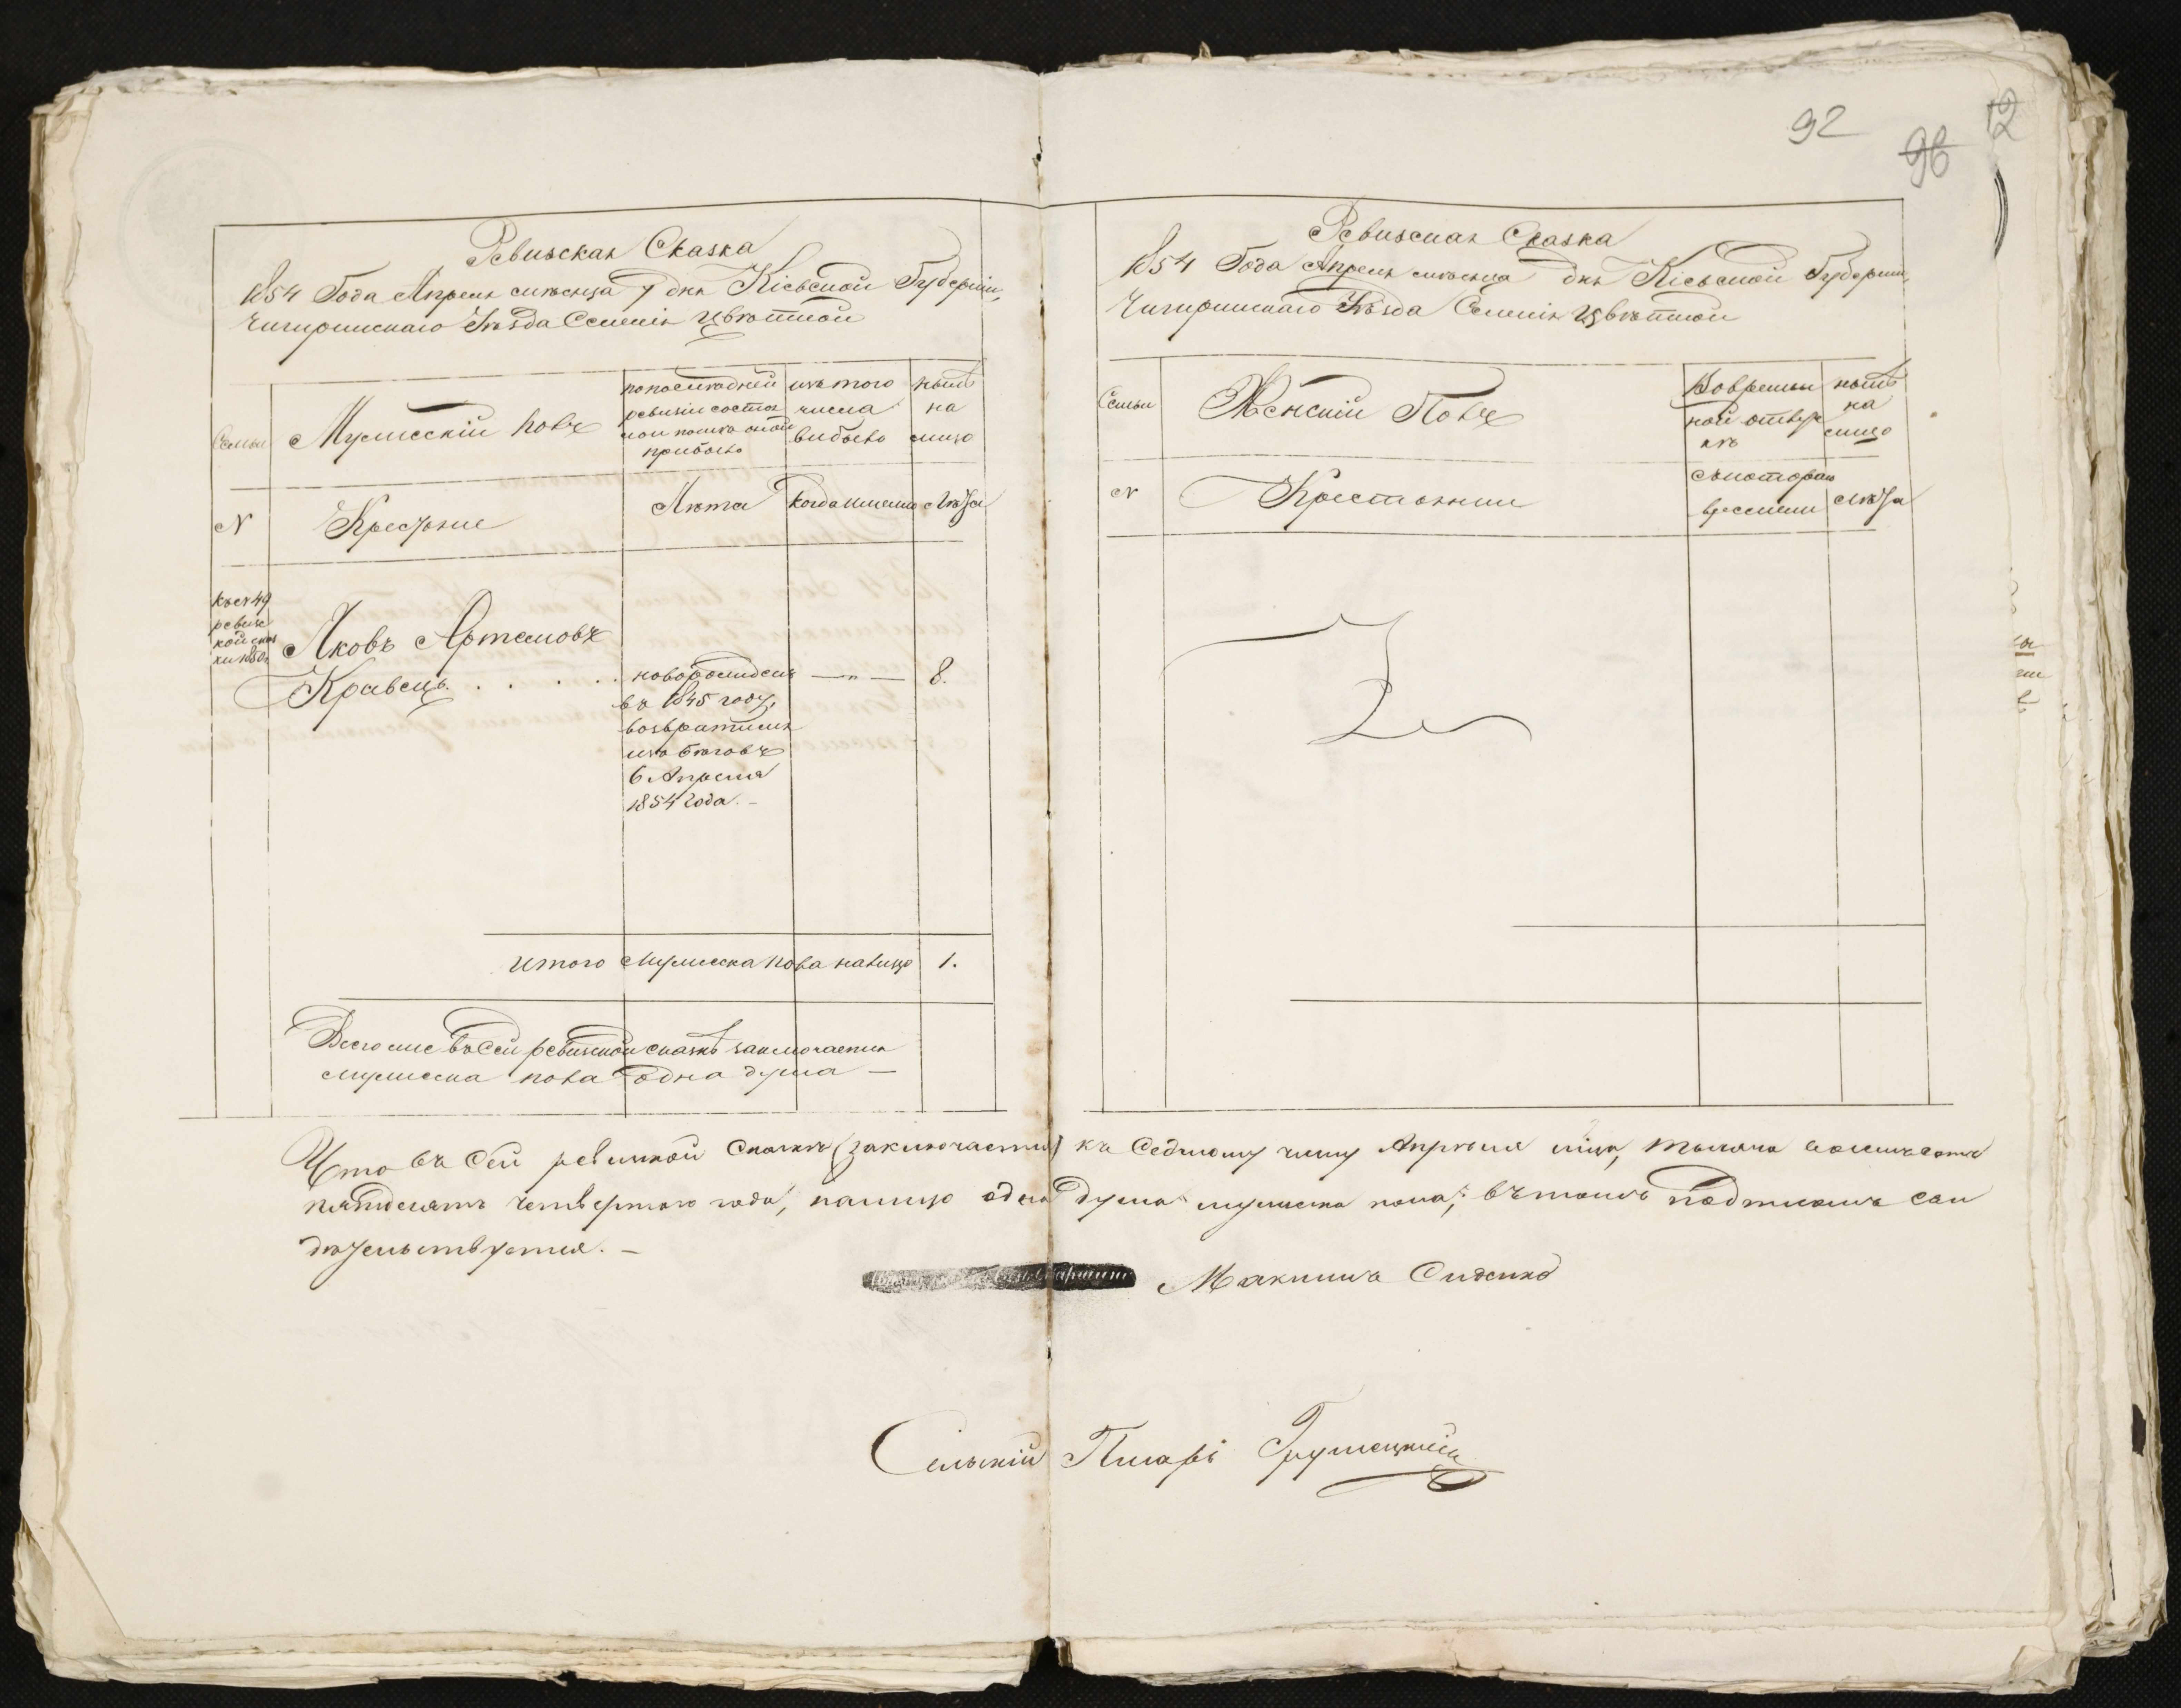 92
96
12
Ревизская Сказка
1854 Года Апреля месяца 7 дня Кіевской Губерніи,
Чигиринскаго Уѣзда Селенія Цвѣтной
Семьи
Мужескій полъ
по последней
ревизіи состоя
ло и после оной
прибыло
изъ того
числа
выбыло
нынѣ
на
лицо
N
Крестьяне
Лѣта
когда именно
Лѣта
къ N 49
ревиз
кой сказ
ки 1850
Яковъ Артемовъ
Кравецъ . . . . .
новорожденъ
въ 1845 году,
возвратился
изъ бѣговъ
6 Апреля
1854 года. –
— „ —
8.
Итого мужеска пола налицо 1.
Всего же въ сей ревизской сказкѣ заключается
мужеска пола одна душа —
Ревизская Сказка
1854 Года Апреля месяца дня Кіевской Губерніи,
Чигиринскаго Уѣзда Селенія Цвѣтной
Семьи
Женскій Полъ
Во времен
ной отлуч
кѣ
нынѣ
на
лицо
N
Крестьянки
съ котораго
времени
Лѣта
Что въ сей ревизкой сказкѣ заключается къ седмому числу Апрѣля м͠ца, тысяча восимьсотъ
пятдесятъ четвертого года, налицо одна душа мужеска пола; въ томъ подписомъ сви
дѣтельствуется. –
Сидѣнко
Сельскій Писарь Грушецкій